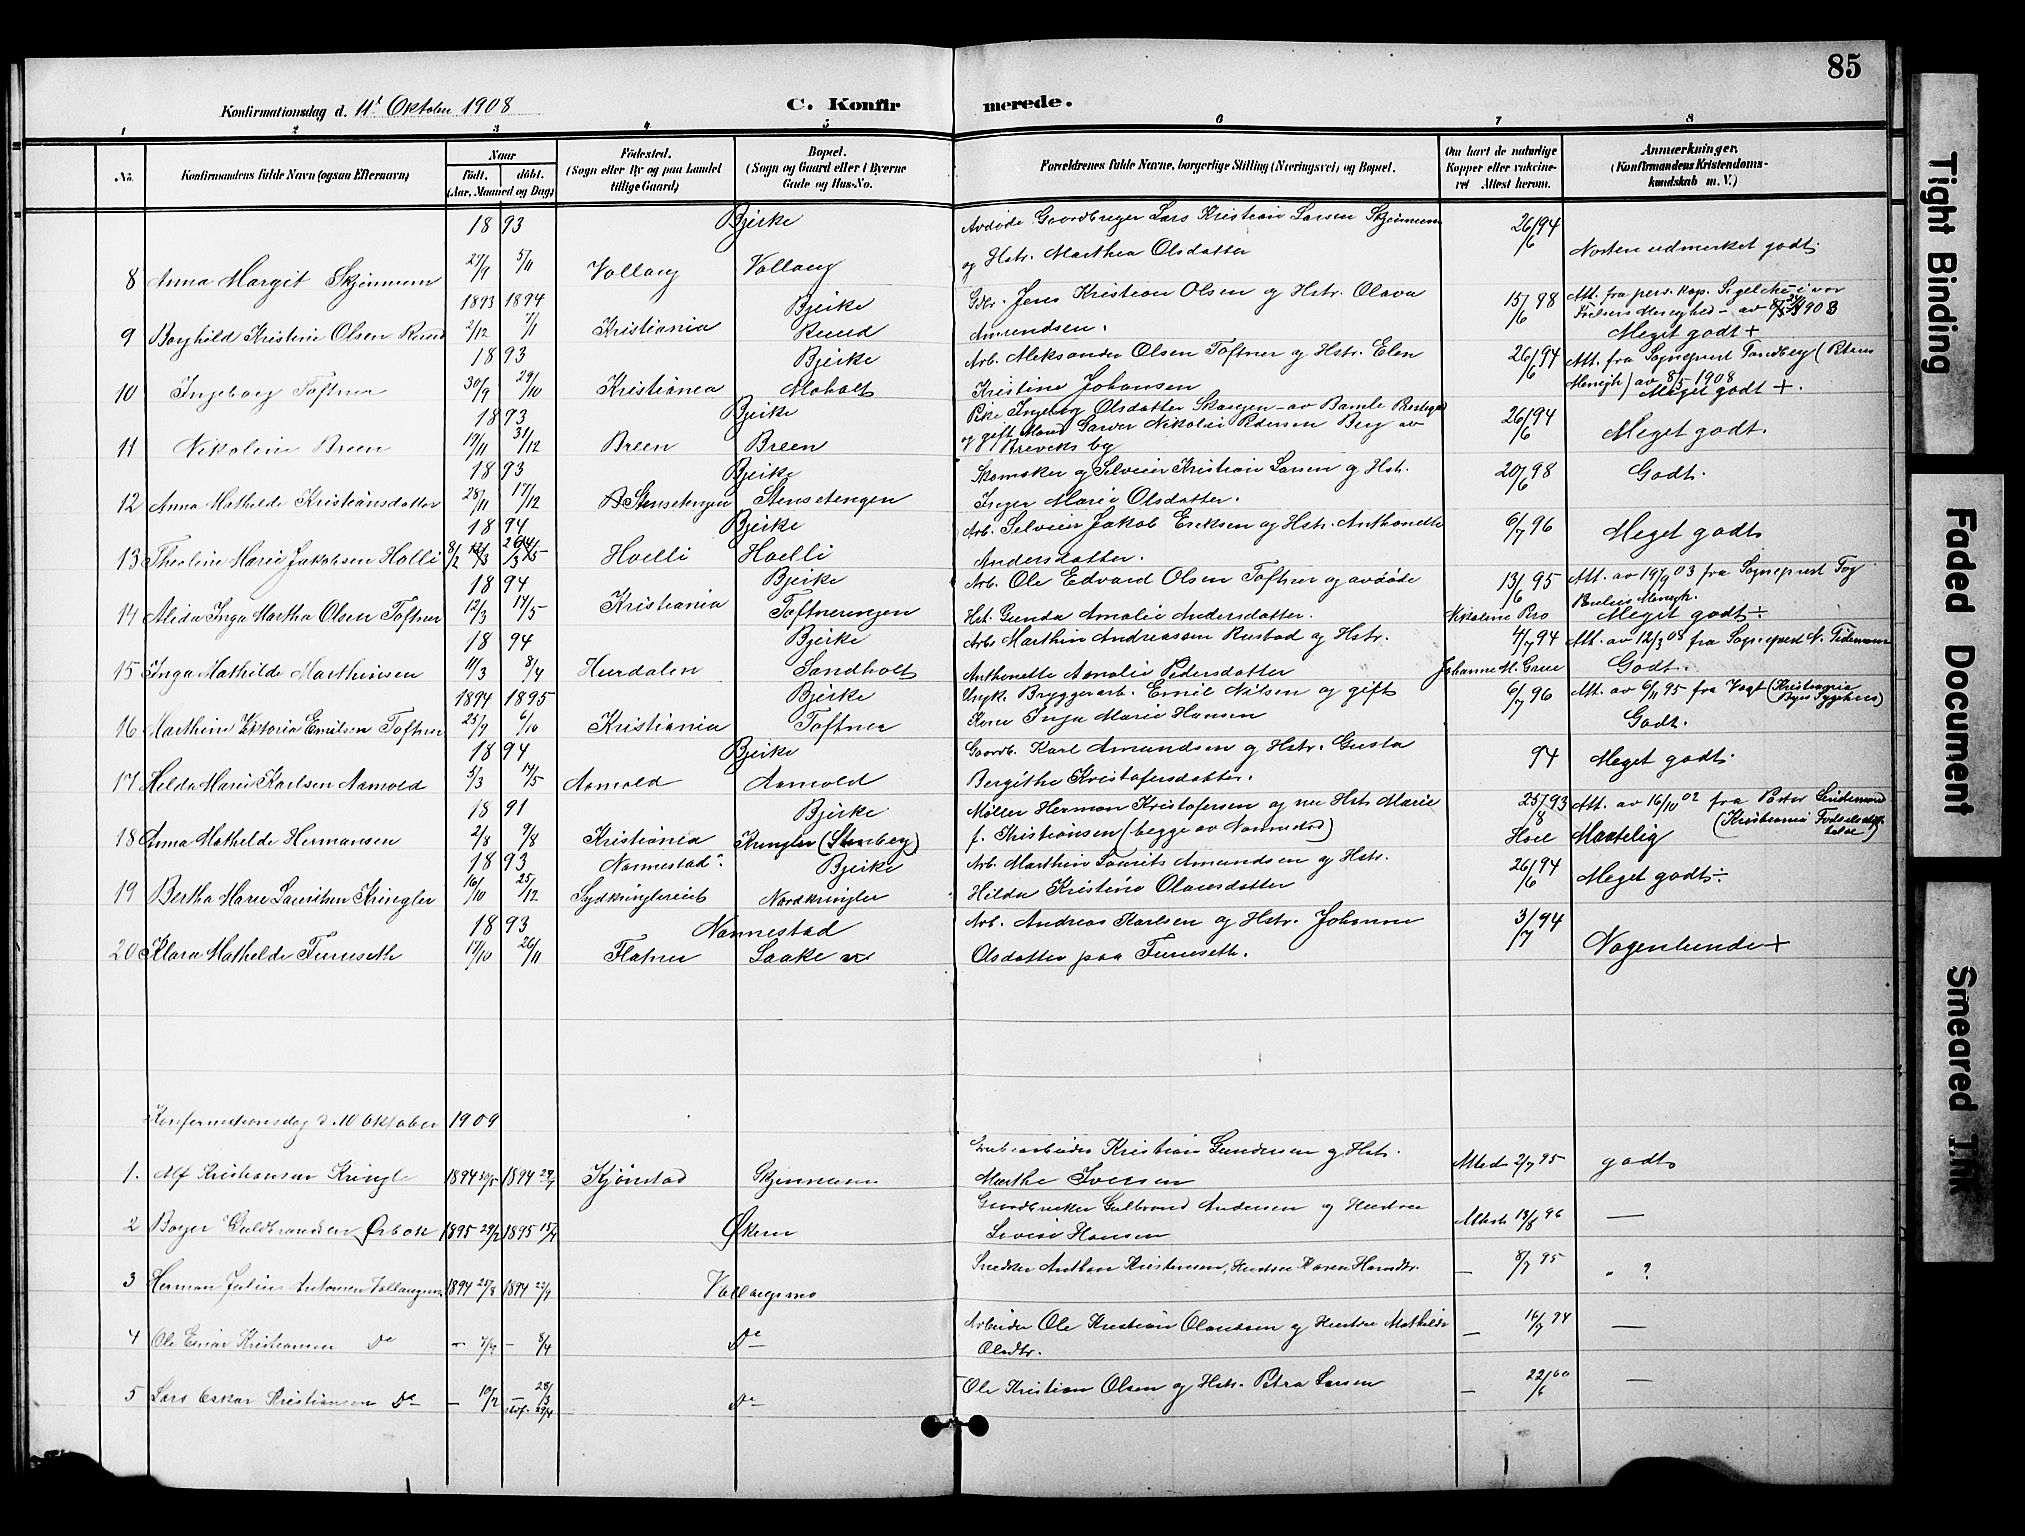 85
Konfirmationsdag d. 11t Oktober 1908
C. Konfirmerede.
1 2 3 4 5 6 7 8
No.
Konfirmandens fulde Navn (ogsaa Efternavn)
Naar
født. døbt.
(Aar, Maaned og Dag)
Fødested.
(Sogn eller By og paa Landet
tillige Gaard)
Bopæl.
(Sogn og Gaard eller i Byerne
Gade og Hus-No.
Forældrenes fulde Navne, borgerlige Stilling (Næringsvei) og Bopæl.
Om havt de naturlige
Kopper eller vakcine-
ret Attest herom.
Anmærkninger.
(Konfirmandens Kristendoms-
kundskab m. V.)
18 93 Bjerke Avdøde Gaardbruger Lars Kristian Larsen Skjennum 26/6 94
8 Anna Margit Skjennum 27/9 5/11 Vollaug Vollaug og Hstr. Marthea Olsdatter Nesten udmerket godt.
1893 1894 Bjerke Gdbr. Jens Kristian Olsen og Hstr. Olava 15/6 98
9 Borghild Kristine Olsen Ruud 2/12 7/1 Kristiania Ruud Amundsen. Meget godt +
18 93 Bjerke Arb. Aleksander Olsen Toftner og Hstr. Elen 26/6 94 Att. fra Sogneprest Tandberg (Petrus
10 Ingeborg Toftner 30/9 29/10 Kristiania Moholt Kristine Johansen Menigh) av 8/5 1908 Meget godt +.
18 93 Bjerke Pike Ingeborg Olsdatter Skaugen - av Bamle Prestegj.
11 Nikoline Breen 19/11 31/12 Breen Breen og gift Mand Garver Nikolai Pedersen Berg av Breviks by 26/6 94 Meget godt.
18 93 Bjerke Skomaker og Selveier Kristian Larsen og Hstr. 20/6 98 Godt.
12 Anna Mathilde Kristiansdatter 28/11 17/12 Stensetengen Stensetengen Inger Marie Olsdatter.
18 94 Bjerke Arb. Selveier Jakob Eriksen og Hstr. Anthonette 6/7 96 Meget godt
13 Theoline Marie Jakobsen Holli 8/2 26/3 Hoelli Hoelli Andersdatter.
18 94 Bjerke Arb. Ole Edvard Olsen Toftner og avdøde 13/6 95 Att. av 19/9 03 fra Sogneprest Fog
14 Alida Inga Martha Olsen Toftner 12/3 14/5 Kristiania Toftnerengen Hst. Gunda Amalie Andersdatter. Nikoline Bro Paulus Menigh. Meget godt ÷
18 94 Bjerke Arb. Marthin Andreassen Rustad og Hstr. 4/7 94 Att. av 12/3 08 fra Sogneprest N. Tidemann
15 Inga Mathilde Marthinsen 11/3 8/4 Hurdalen Sandholt Anthonette Amalie Pedersdatter Johanne M. Grue Godt.
1894 1895 Bjerke Ugift. Bryggeriarb. Emil Nilsen og gift 6/7 96 Att. av 6/11 95 fra Vogt (Kristiania Byes Sygehus)
16 Marthine Viktoria Emilsen Toftner 25/9 6/10 Kristiania Toftner Kone Inga Marie Hansen Godt.
18 94 Bjerke Gaardb. Karl Amundsen og Hstr. Gusta 94 Meget godt.
17 Hilda Marie Karlsen Aamold 5/3 14/5 Aamold Aamold Bergithe Kristofersdatter.
18 91 Bjerke Møller Herman Kristofersen og nu Hst. Marie 25/8 93 Att. av 16/10 02 fra Pastor Lindemann
18 Anna Mathilde Hermansen 2/8 9/8 Kristiania Kringler (Stenberg) f. Kristiansen (begge av Nannestad) Hoel Maatelig (Kristiania Fødselsstiftelse)
18 93 Nannestad. Bjerke Arb. Marthin Laurits Amundsen og Hstr. 26/6 94
19 Bertha Marie Lauritsen Kringler 16/10 25/12 Sydkringlereiet Nordkringler Hilda Kristine Olausdatter Meget godt ÷
18 93 Nannestad Arb. Andreas Karlsen og Hstr. Johanne 3/7 94
20 Klara Mathilde Furuseth 17/10 26/11 Flatner Laake Olsdatter paa Furuseth. Nogenlunde +
Konfirmationsdag d. 10 Oktober 1909
1. Alf Kristiansen Kringle 1894 1894 Kjønstad Skjennum Kristian Gundersen og Hstr. Marthe Iversen Attest 2/7 95 godt
2 Borger Guldbrandsen Ørbæk 1895 29/2 1895 15/4 Økern Gaardbruker Gulbrand Andersen og Hustru Lovise Hansen Attest 13/8 96 —
3 Herman Julius Antonsen Vollaugsmo 1894 25/8 1894 23/9 Vollaugsmo Snedker Anthon Kristiansen, Hustru Karen Hansdtr. — 8/7 95 " ?
4 Ole Einar Kristiansen Do — 7/9 — 8/4 Do Arbeider Ole Kristian Olaussen og Hustru Mathilde Olsdtr. — 16/7 94 —
5 Lars Oskar Kristiansen Do — 10/2 — 28/3 29/4 Do Ole Kristian Olsen og Hstr. Petra Larsen — 22/6 00 —
Tight Binding
Faded Document
Smeared Ink